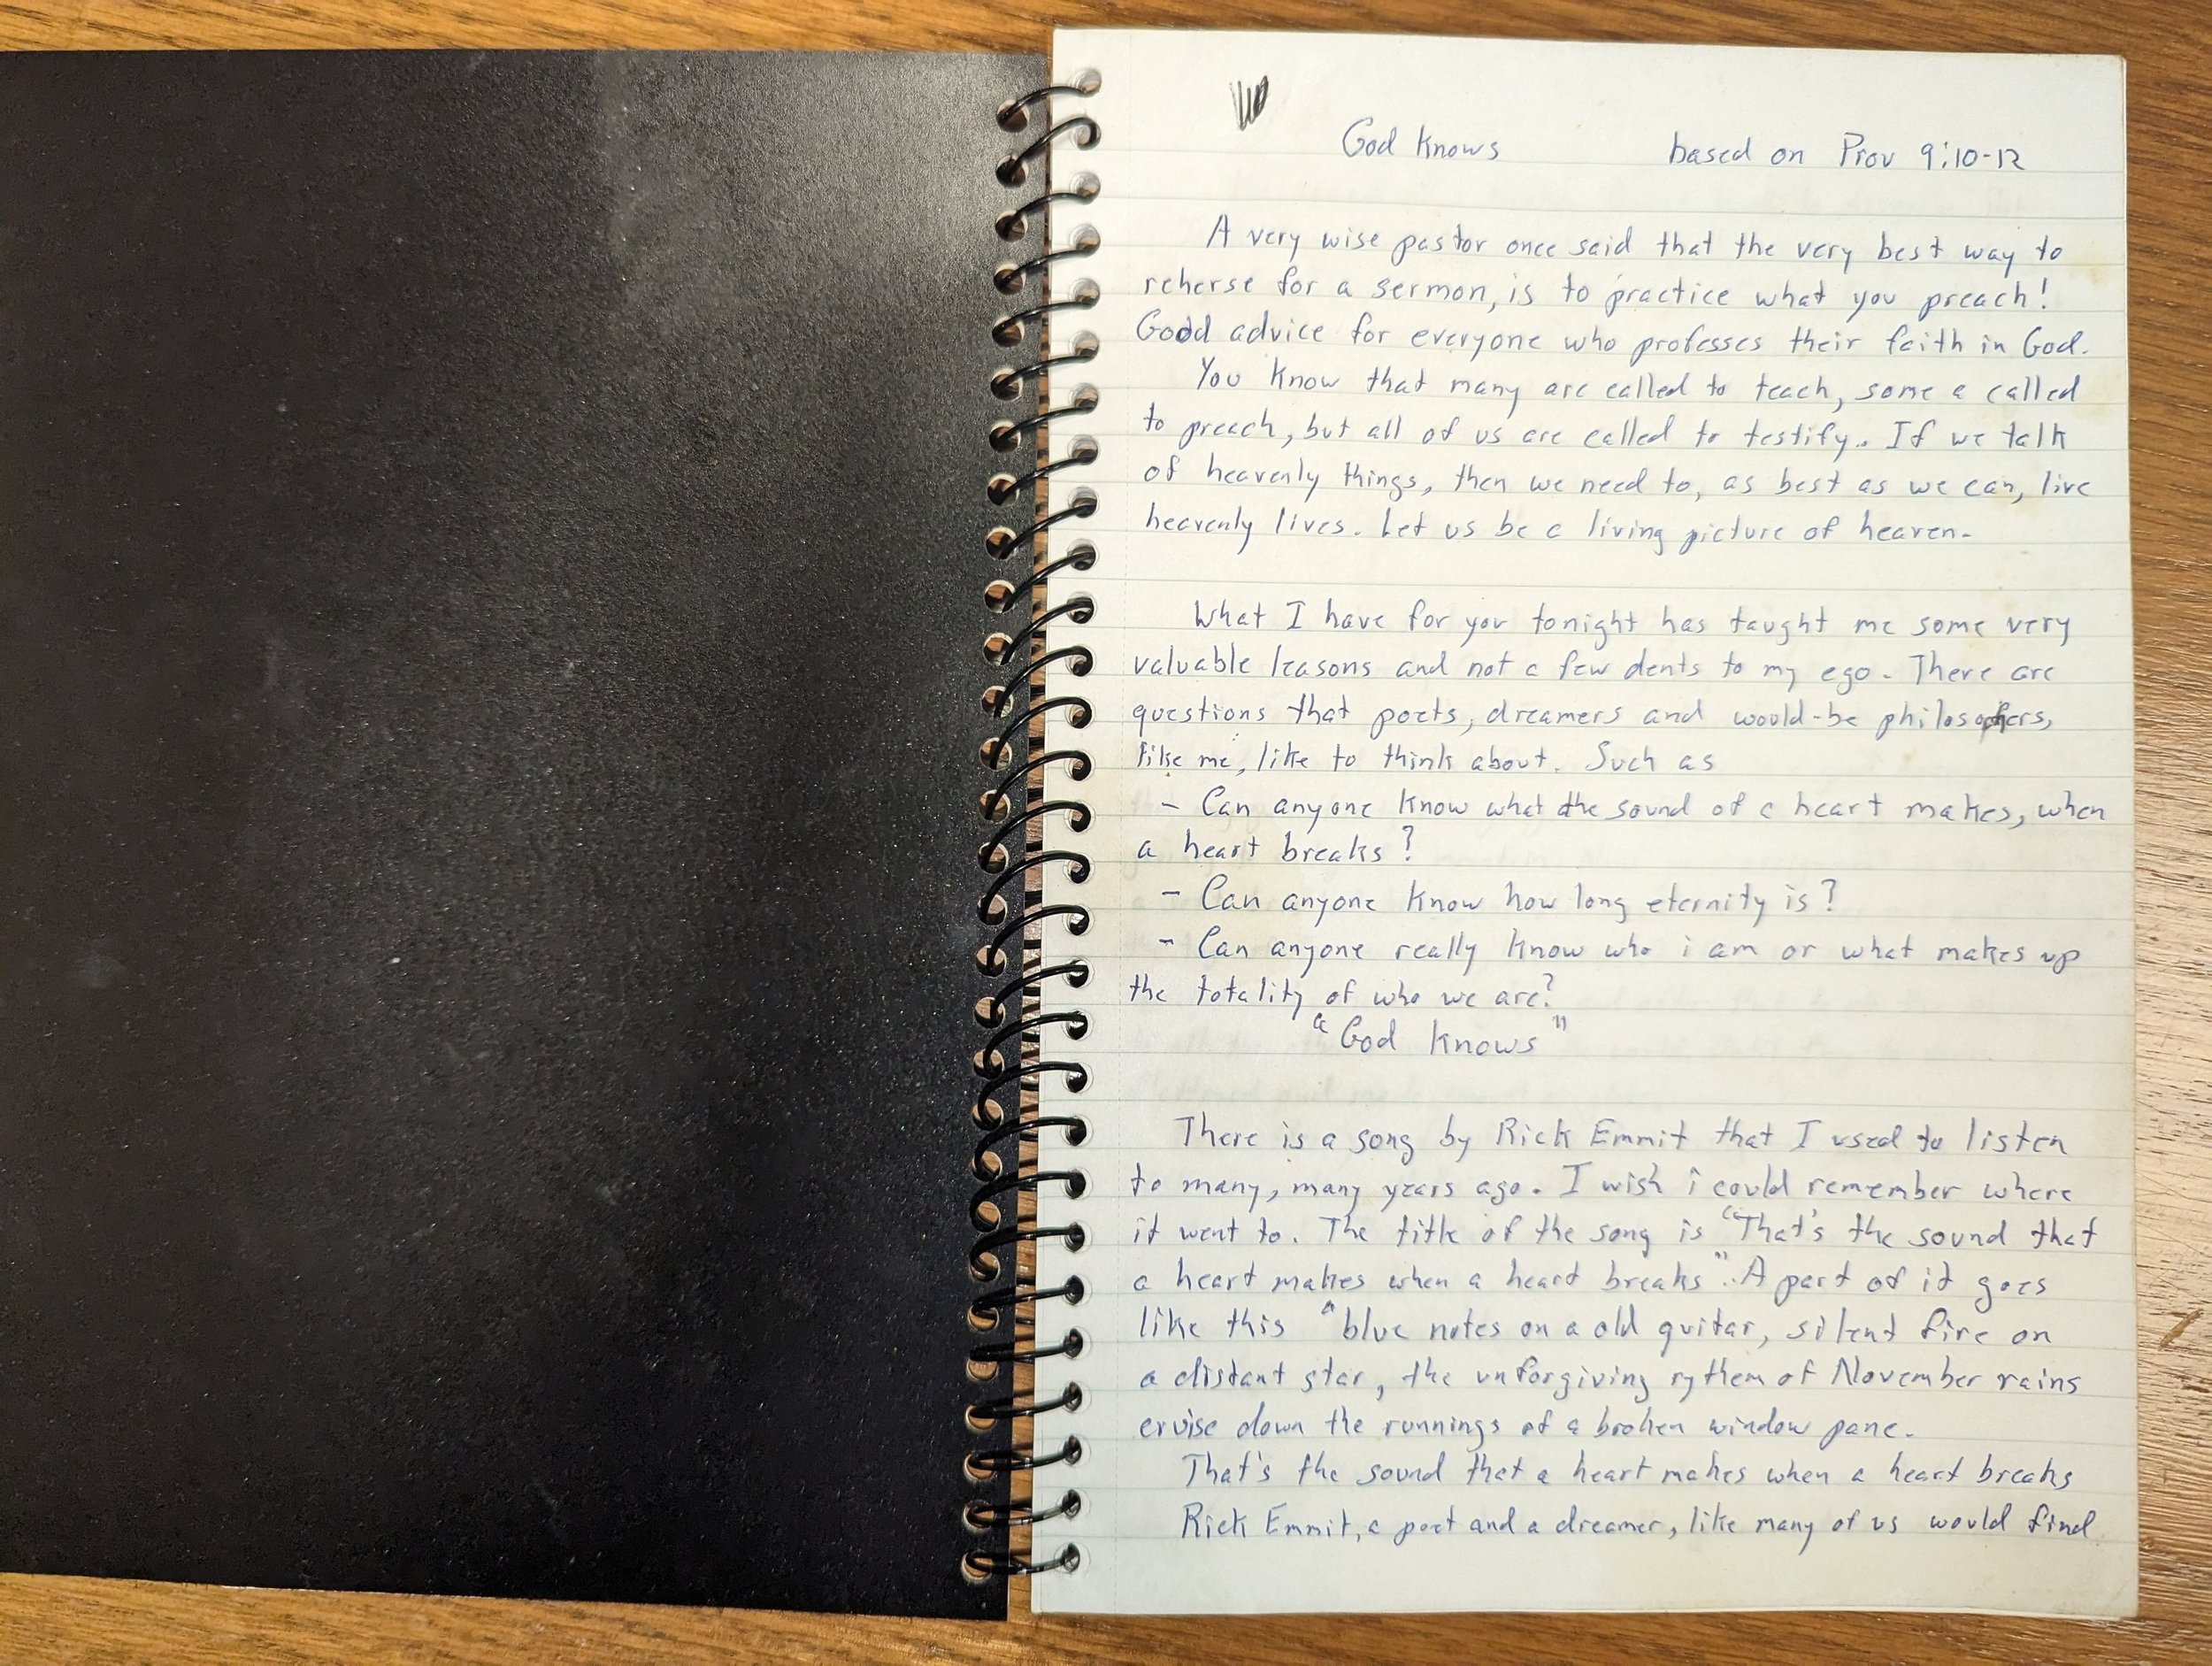 God Knows based on Prov 9:10-12
A very wise pastor once said that the very best way to
reherse for a sermon, is to practice what you preach!
Good advice for everyone who professes their faith in God.
You Know that many are called to teach, some a called
to preach, but all of us are called to testify. If we talk
of heavenly things, then we need to, as best as we can, live
heavenly lives. Let us be a living picture of heaven.
What I have for you tonight has taught me some very
valuable leasons and not a few dents to my ego. There are
questions that poets, dreamers and would-be philosophers,
like me, like to think about. Such as
- Can anyone Know what the sound of a heart makes, when
a heart breaks?
- Can anyone Know how long eternity is?
- Can anyone really Know who i am or what makes up
the totality of who we are?
"God Knows"
There is a song by Rick Emmit that I used to listen
to many, many years ago. I wish i could remember where
it went to. The title of the song is "That's the sound that
a heart makes when a heart breaks". A part of it goes
like this "blue notes on a old guitar, silent fire on
a distant star, the unforgiving rythem of November rains
cruise down the runnings of a broken window pane.
That's the sound that a heart makes when a heart breaks
Rick Emmit, a poet and a dreamer, like many of us would find